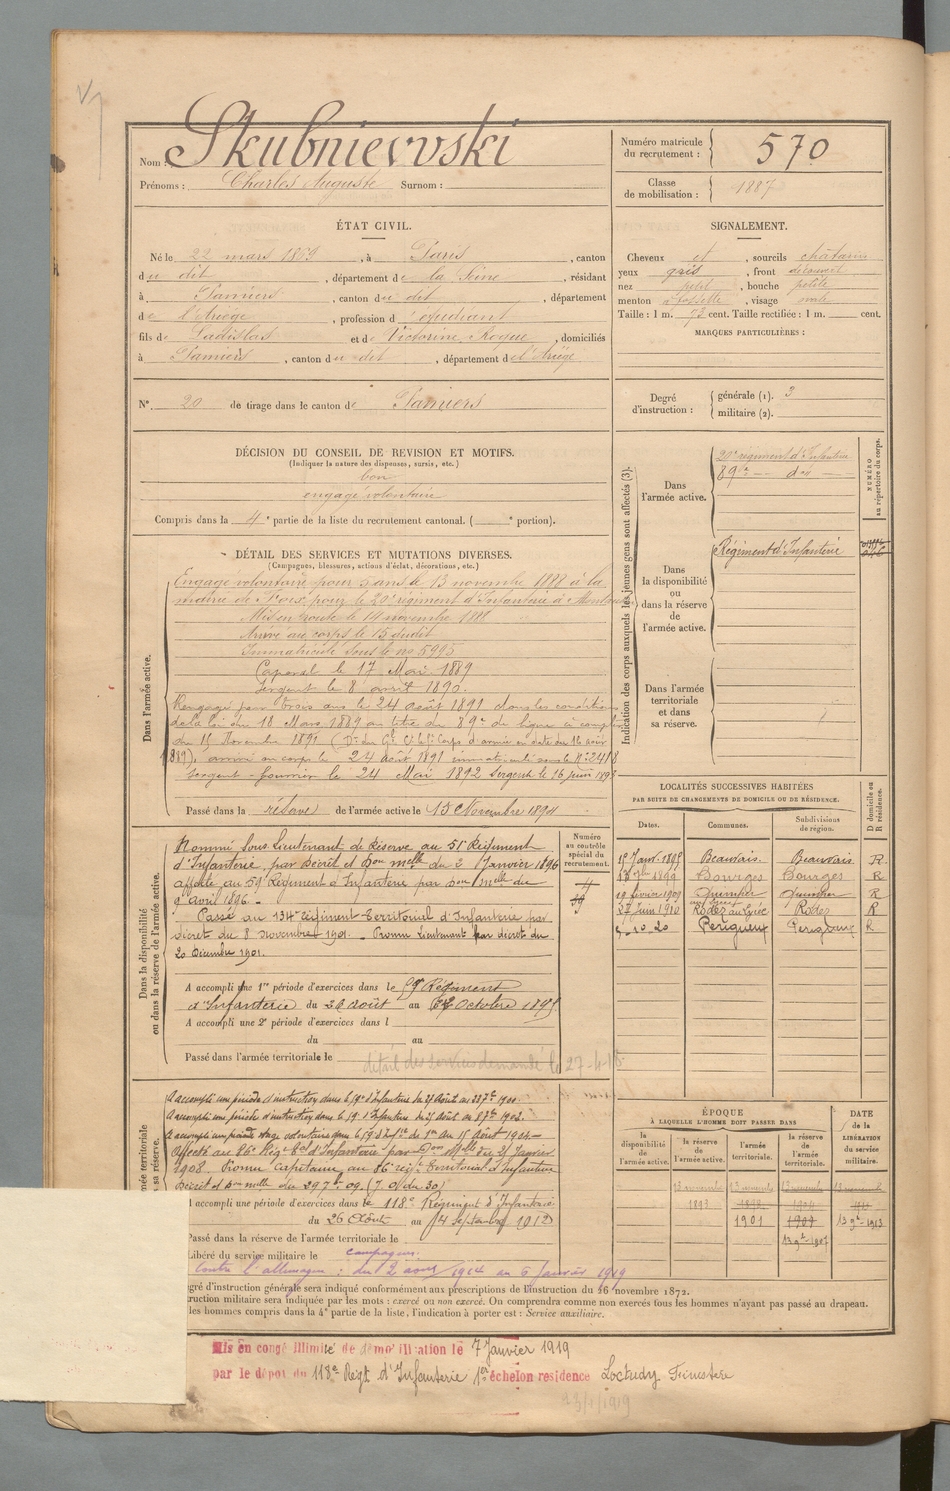 Nom : Skubniewski
Prénoms : Charles Auguste Surnom :
Numéro matricule du recrutement : 570
Classe de mobilisation : 1887
ÉTAT CIVIL.
Né le 22 mars 1869, à Paris, canton
du dit, département de la Seine, résidant
à Pamiers, canton du dit, département
de l'Ariège, profession d'étudiant
fils de Ladislas et de Victorine Roque, domiciliés
à Pamiers, canton du dit, département de l'Ariège
N° 20 de tirage dans le canton de Pamiers
SIGNALEMENT.
Cheveux et, sourcils châtains
yeux gris, front découvert
nez petit, bouche petite
menton à fossette, visage ovale
Taille : 1 m. 73 cent. Taille rectifiée : 1 m. cent.
MARQUES PARTICULIÈRES :
Degré d'instruction :
générale (1). 3
militaire (2).
DÉCISION DU CONSEIL DE REVISION ET MOTIFS.
(Indiquer la nature des dispenses, sursis, etc.)
bon
engagé volontaire
Compris dans la 4e partie de la liste du recrutement cantonal. ( e portion).
DÉTAIL DES SERVICES ET MUTATIONS DIVERSES.
(Campagnes, blessures, actions d'éclat, décorations, etc.)
Dans l'armée active.
Engagé volontaire pour 5 ans le 13 novembre 1888 à la
mairie de Foix, pour le 20e régiment d'Infanterie à
Mis en route le 14 novembre 1888
Arrivé au corps le 15 dudit
Immatriculé sous le no 5995
Caporal le 17 Mai 1889
Sergent le 8 avril 1890.
Rengagé pour trois ans le 24 août 1891 dans les conditions
de la loi du 18 Mars 1889 au titre du 89e de ligne à compter
du 15 Novembre 1891
1891), arrivé au corps le 24 août 1891 immatriculé sous le N° 2418
Sergent-fourrier le 24 Mai 1892 Sergent le 16 juin 1893
Passé dans la réserve de l'armée active le 15 Novembre 1894
Indication des corps auxquels les jeunes gens sont affectés (3).
NUMÉRO au répertoire du corps.
Dans l'armée active.
20e régiment d'Infanterie
89e — do —
Dans la disponibilité ou dans la réserve de l'armée active.
Régiment d'Infanterie
Dans l'armée territoriale et dans sa réserve.
Dans la disponibilité ou dans la réserve de l'armée active.
Numéro au contrôle spécial du recrutement.
Nommé Sous Lieutenant de Réserve au 51e Régiment
d'Infanterie, par Décret et Don melle du 2 Janvier 1896
affecté au 59e Régiment d'Infanterie par Don melle du
9 avril 1896. —
Passé au 134e régiment Territorial d'Infanterie par
décret du 8 novembre 1901. — Promu Lieutenant par décret du
20 Décembre 1901.
A accompli une 1re période d'exercices dans le 51e Régiment
d'Infanterie du 30 août au 27 Octobre 1895
A accompli une 2e période d'exercices dans l
du au
Passé dans l'armée territoriale le
détail des services demandé le 27-4-18
LOCALITÉS SUCCESSIVES HABITÉES
PAR SUITE DE CHANGEMENTS DE DOMICILE OU DE RÉSIDENCE.
Dates. Communes. Subdivisions de région. D domicile ou R résidence.
15 Janv. 1895 Beauvais. Beauvais. R.
1899 Bourges Bourges R
19 février 1909 Quimper Quimper R
27 Juin 1910 Rodez au Lycée Rodez R
5-10-20 Périgueux Périgueux R
A accompli une période d'instruction dans le
A accompli une période d'instruction dans le
A accompli une période stage volontaire dans le 59e d'Infie du 1er au 15 Août 1904 —
Affecté au 86e Régt tal d'Infanterie par Don Melle du 25 Janvier
1908. Promu Capitaine au 86e régt Territorial d'Infanterie
Décret et Don melle du 29 7bre 09. (J. O/ du 30)
accompli une période d'exercices dans le 118e Régiment d'Infanterie
du 26 Août au 4 Septembre 1912
Passé dans la réserve de l'armée territoriale le
Libéré du service militaire le
campagnes:
Contre l'allemagne : du 2 août 1914 au 6 Janvier 1919
ÉPOQUE À LAQUELLE L'HOMME DOIT PASSER DANS
la disponibilité de l'armée active. la réserve de l'armée active. l'armée territoriale. la réserve de l'armée territoriale.
DATE de la LIBÉRATION du service militaire.
13 novembre 13 novembre 13 novembre 13 novembre
1893 1899
1901 1907 13 9bre 1913
13 9bre 1907
gré d'instruction générale sera indiqué conformément aux prescriptions de l'instruction du 26 novembre 1872.
ruction militaire sera indiquée par les mots : exercé ou non exercé. On comprendra comme non exercés tous les hommes n'ayant pas passé au drapeau.
les hommes compris dans la 4e partie de la liste, l'indication à porter est : Service auxiliaire.
Mis en congé illimité de démobilisation le 7 Janvier 1919
par le dépôt du 118e Régt d'Infanterie 1er échelon résidence Loctudy Finistère
23/1/1919